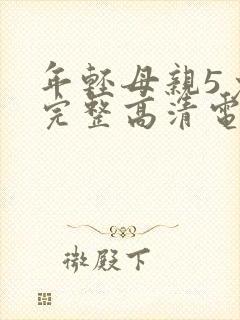 年輕母親5
完整高清電
微殿下